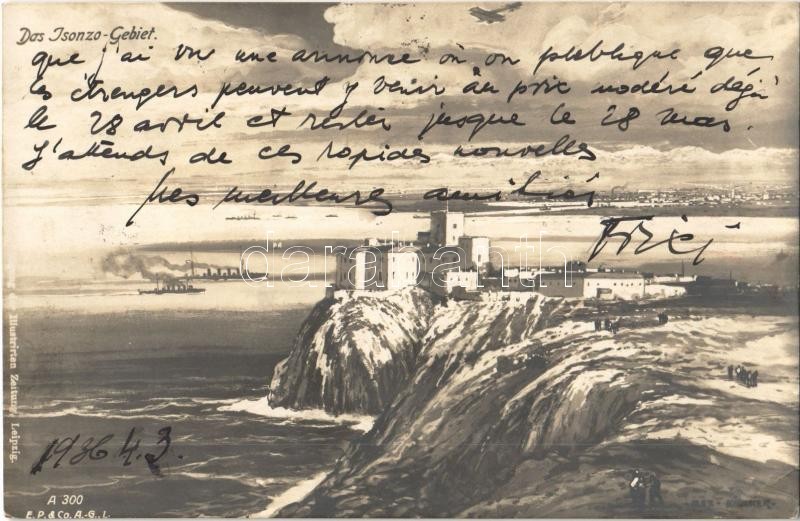 Das Isonzo-Gebiet.
que j'ai vu une annonce où on publique que
les étrangers peuvent y venir au prix modéré déjà
le 28 avril et rester jusque le 28 mai.
J'attends de ces rapides nouvelles
Mes meilleures amitiés
darabanth
Illustrirten Zeitung, Leipzig.
1936 4.3.
A 300
E.P. & Co. A.-G., L.